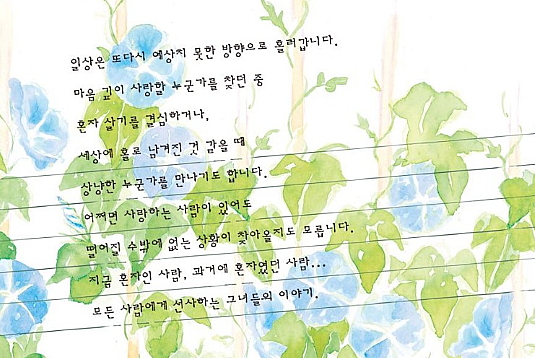 일상은 또다시 예상치 못한 방향으로 흘러갑니다.
마음 깊이 사랑할 누군가를 찾던 중
혼자 살기를 결심하거나,
세상에 홀로 남겨진 것 같을 때
상냥한 누군가를 만나기도 합니다.
어쩌면 사랑하는 사람이 있어도
떨어질 수밖에 없는 상황이 찾아올지도 모릅니다.
지금 혼자인 사람, 과거에 혼자였던 사람...
모든 사람에게 선사하는 그녀들의 이야기.